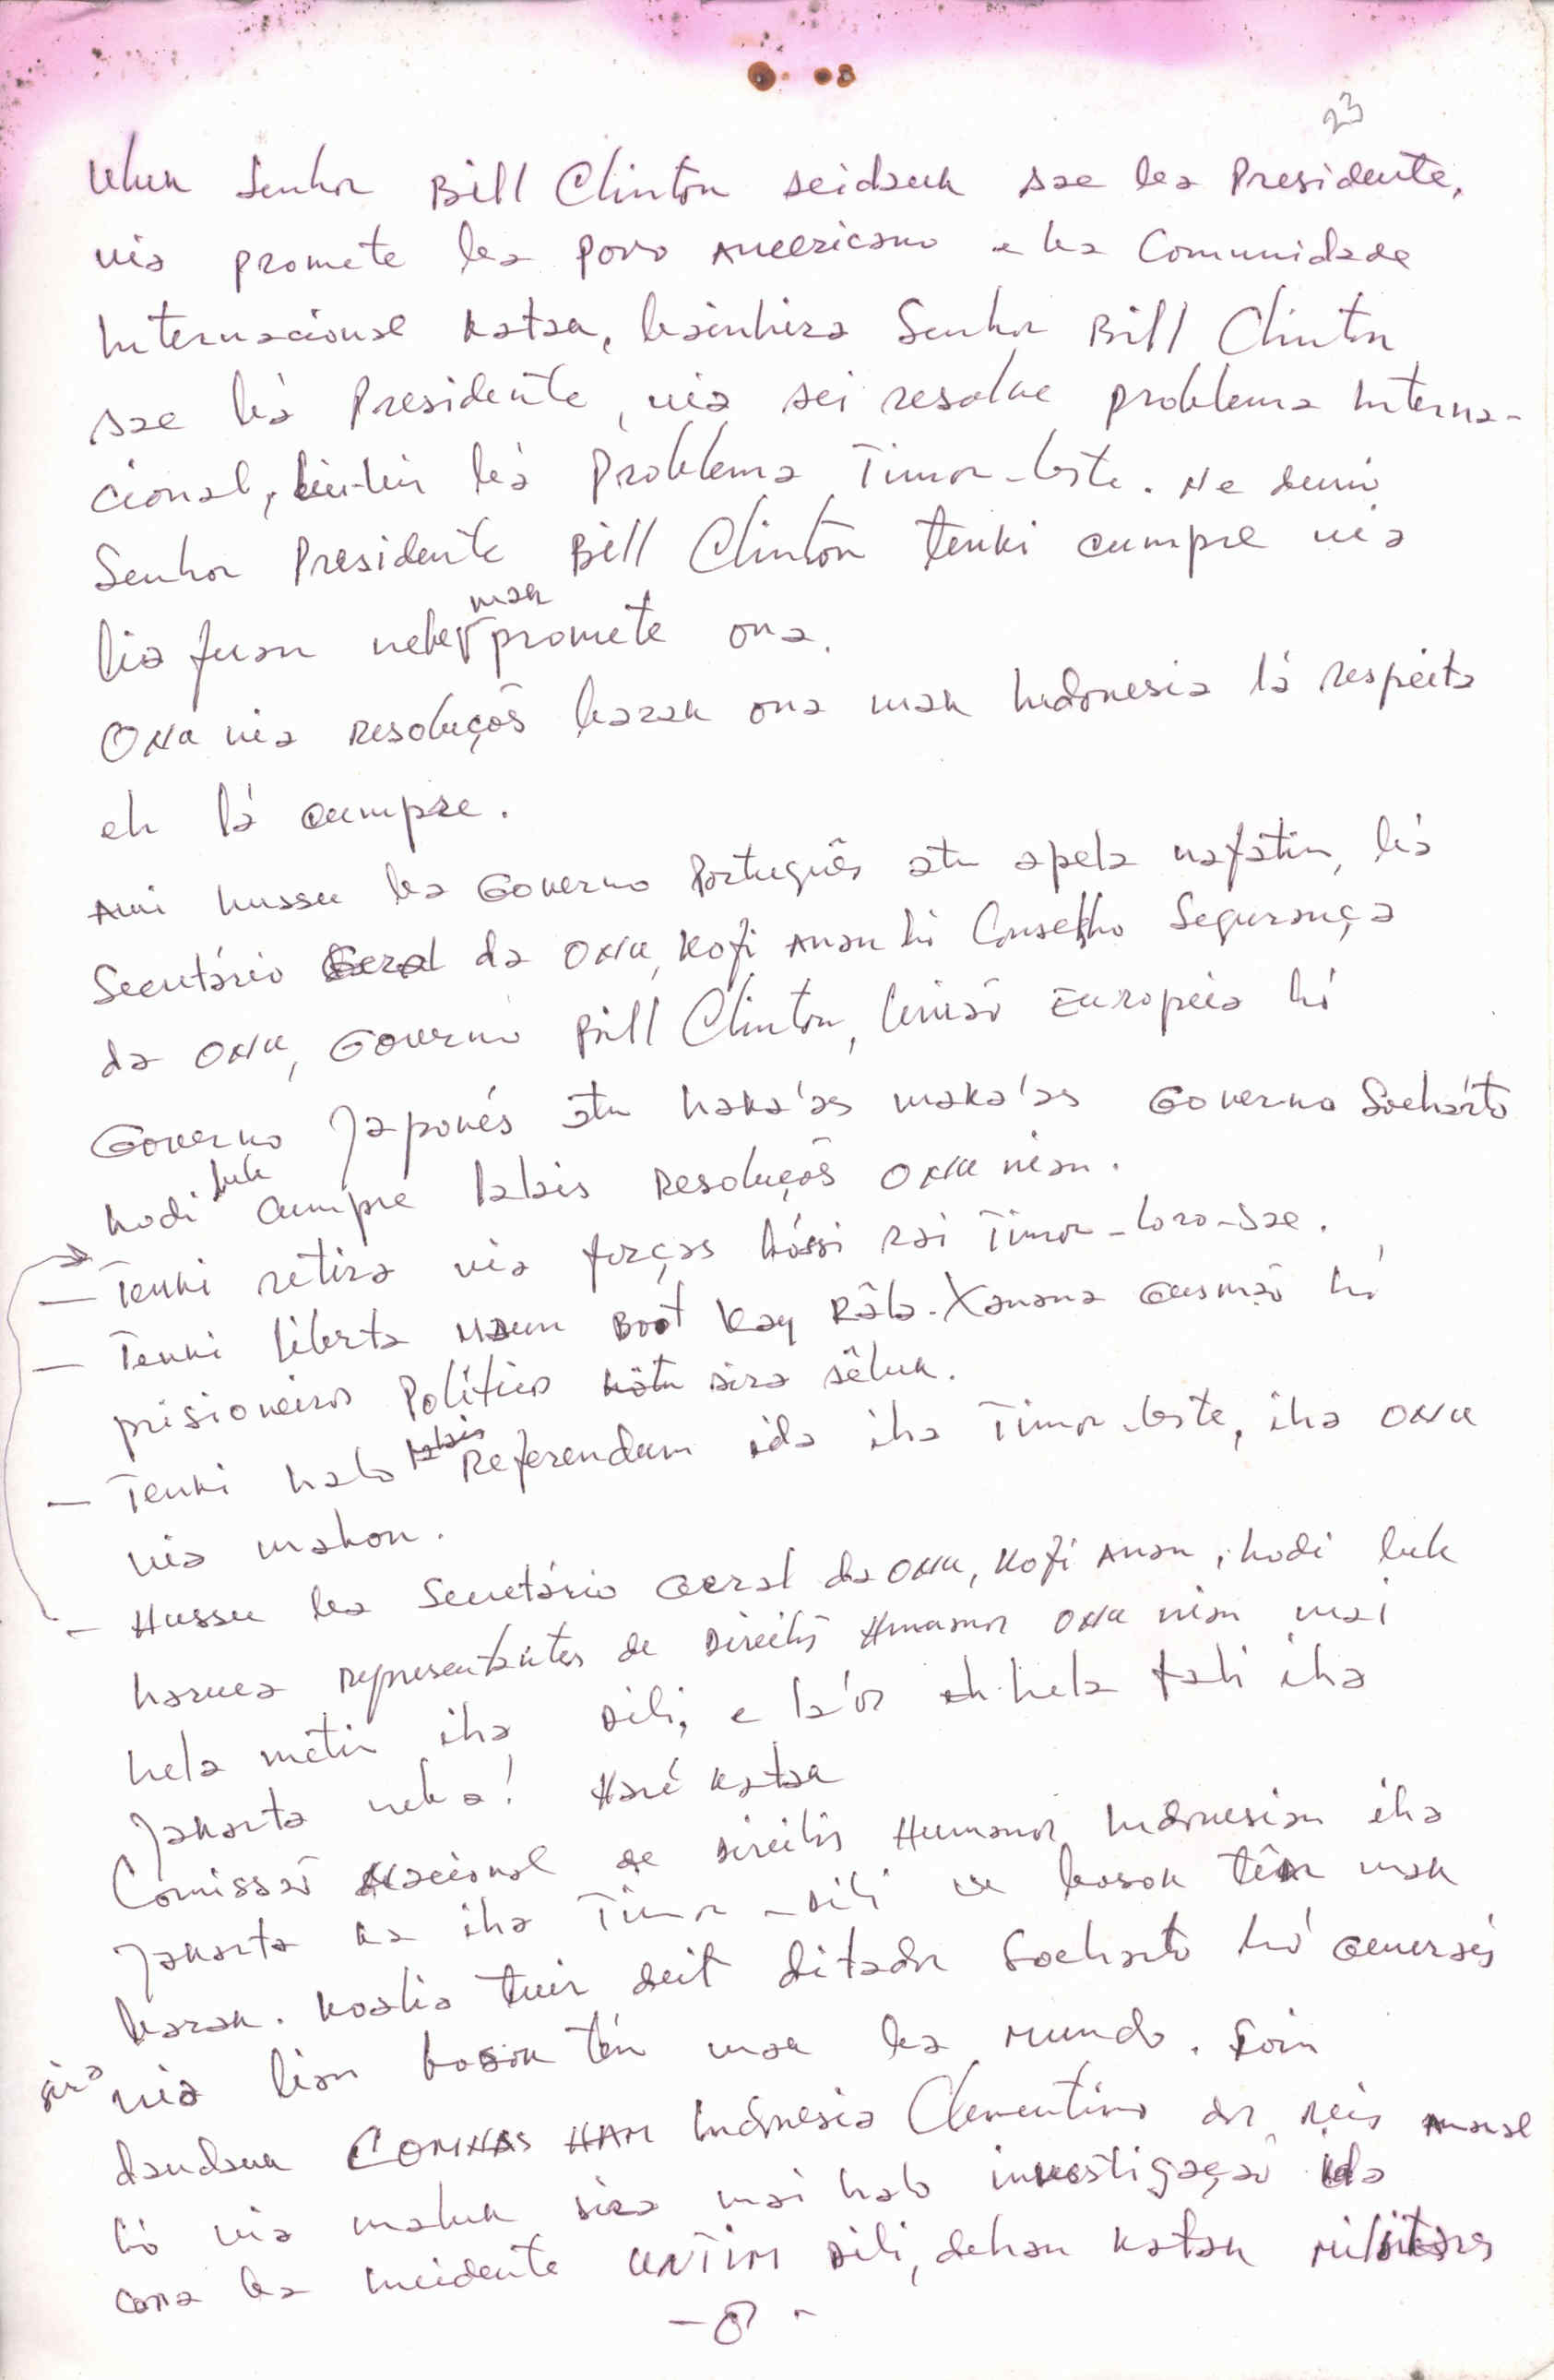 23
Uluk Senhor Bill Clinton seidauk sae ba Presidente,
nia promete ba povo Americano e ba Comunidade
Internacional katak, bainhira Senhor Bill Clinton
sae bá Presidente, nia sei resolve problema Interna-
cional, liu-liu bá Problema Timor-Leste. Ne duni
Senhor Presidente Bill Clinton tenki cumpre nia
lia fuan nebe mak promete ona.
ONU nia resoluções barak ona mak Indonesia lá respeita
eh lá cumpre.
Ami hussu ba Governo Português atu apela nafatin, bá
Secretário Geral da ONU, Kofi Anan hó Conselho Segurança
da ONU, Governo Bill Clinton, União Europeia hó
Governo Japonés atu haka'as maka'as Governo Soeharto
hodi bele cumpre lalais Resoluções ONU nian.
— Tenki retira nia forças hóssi rai Timor-Loro-Sae.
— Tenki liberta Maun Boot Kay Râla-Xanana Gusmão hó
prisioneiros Políticos hotu sira sêluk.
— Tenki halo lalais Referendum ida iha Timor-Leste, iha ONU
nia mahon.
- Hussu ba Secretário Geral da ONU, Kofi Anan, hodi bele
haruca representantes de Direitos Humanos ONU nian mai
hela metin iha Dili, e la'os eh hela fali iha
Jakarta neba! Haré katak
Comissão Nacional de Direitos Humanos Indonesian iha
Jakarta ka iha Timor-Dili ne bosok tên mak
barak. Koalia tuir deit ditador Soeharto hó Generais
sira nia lian bosok tén mak ba mundo. Foin
daudauk COMNAS HAM Indonesia Clementino dos Reis Amaral
hó nia maluk sira mai halo investigação ida
cona ba incidente UNTIM Dili, dehan katak militares
- 8 -